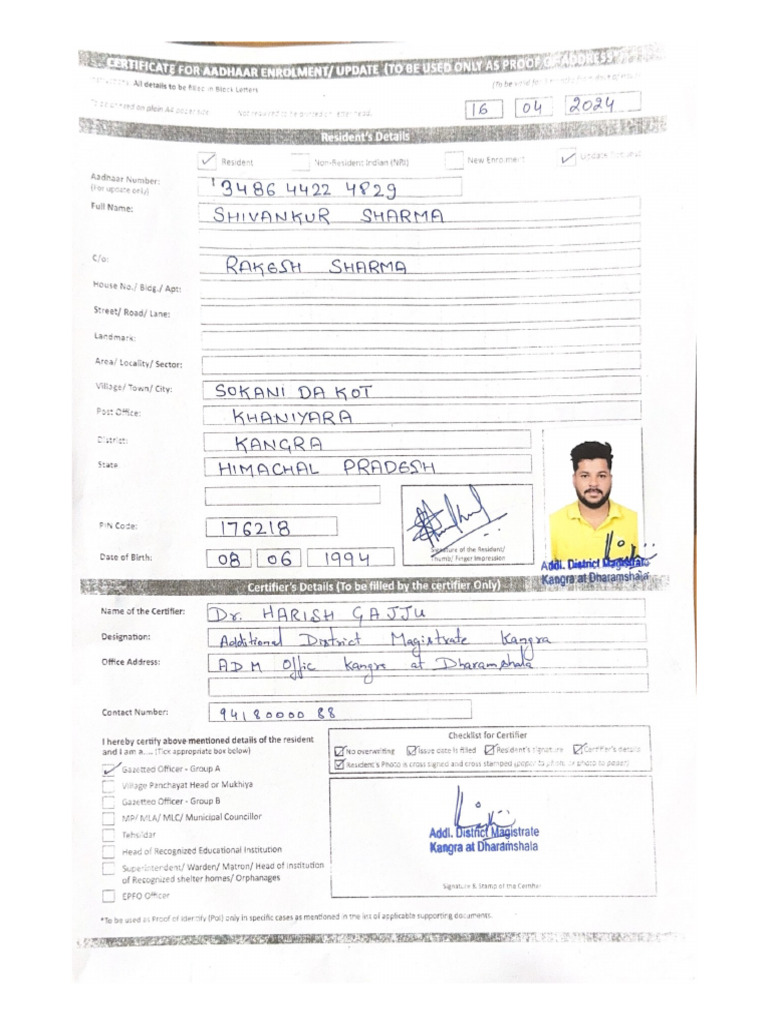 CERTIFICATE FOR AADHAAR ENROLMENT/ UPDATE (TO BE USED ONLY AS PROOF OF ADDRESS
All details to be filled in Block Letters
16 04 2024
Resident's Details
Resident Non-Resident Indian (NRI) New Enrolment Update
Aadhaar Number: 3486 4422 4829
(For update only)
Full Name: SHIVANKUR SHARMA
C/o: RAKESH SHARMA
House No./ Bldg./ Apt:
Street/ Road/ Lane:
Landmark:
Area/ Locality/ Sector:
Village/ Town/ City: SOKANI DA KOT
Post Office: KHANIYARA
District: KANGRA
State HIMACHAL PRADESH
PIN Code: 176218
Signature of the Resident/
Thumb/ Finger Impression
Date of Birth: 08 06 1994
Addl. District Magistrate
Kangra at Dharamshala
Certifier's Details (To be filled by the certifier Only)
Name of the Certifier: Dr. HARISH GAJJU
Designation: Additional District Magistrate Kangra
Office Address: ADM Offic Kangra at Dharamshala
Contact Number: 94180000 88
I hereby certify above mentioned details of the resident
and I am a.... (Tick appropriate box below)
Checklist for Certifier
No overwriting Issue date is filled Resident's signature Certifier's details
Resident's Photo is cross signed and cross stamped (paper to photo or photo to paper)
Gazetted Officer - Group A
Village Panchayat Head or Mukhiya
Gazetted Officer - Group B
MP/ MLA/ MLC/ Municipal Councillor
Tehsildar
Head of Recognized Educational Institution
Superintendent/ Warden/ Matron/ Head of Institution
of Recognized shelter homes/ Orphanages
EPFO Officer
Addl. District Magistrate
Kangra at Dharamshala
Signature & Stamp of the Certifier
*To be used as Proof of Identify (PoI) only in specific cases as mentioned in the list of applicable supporting documents.